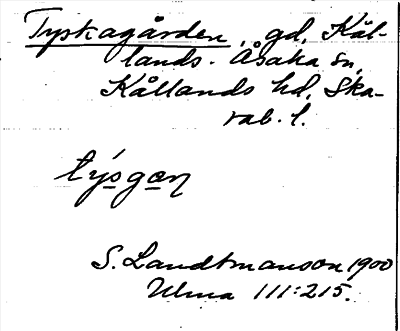 Tyskagården, gd, Kål-
lands-Åsaka sn,
Kållands hd, Ska-
rab. l.
týsgan
S. Landtmanson 1900
Ulma 111:215.